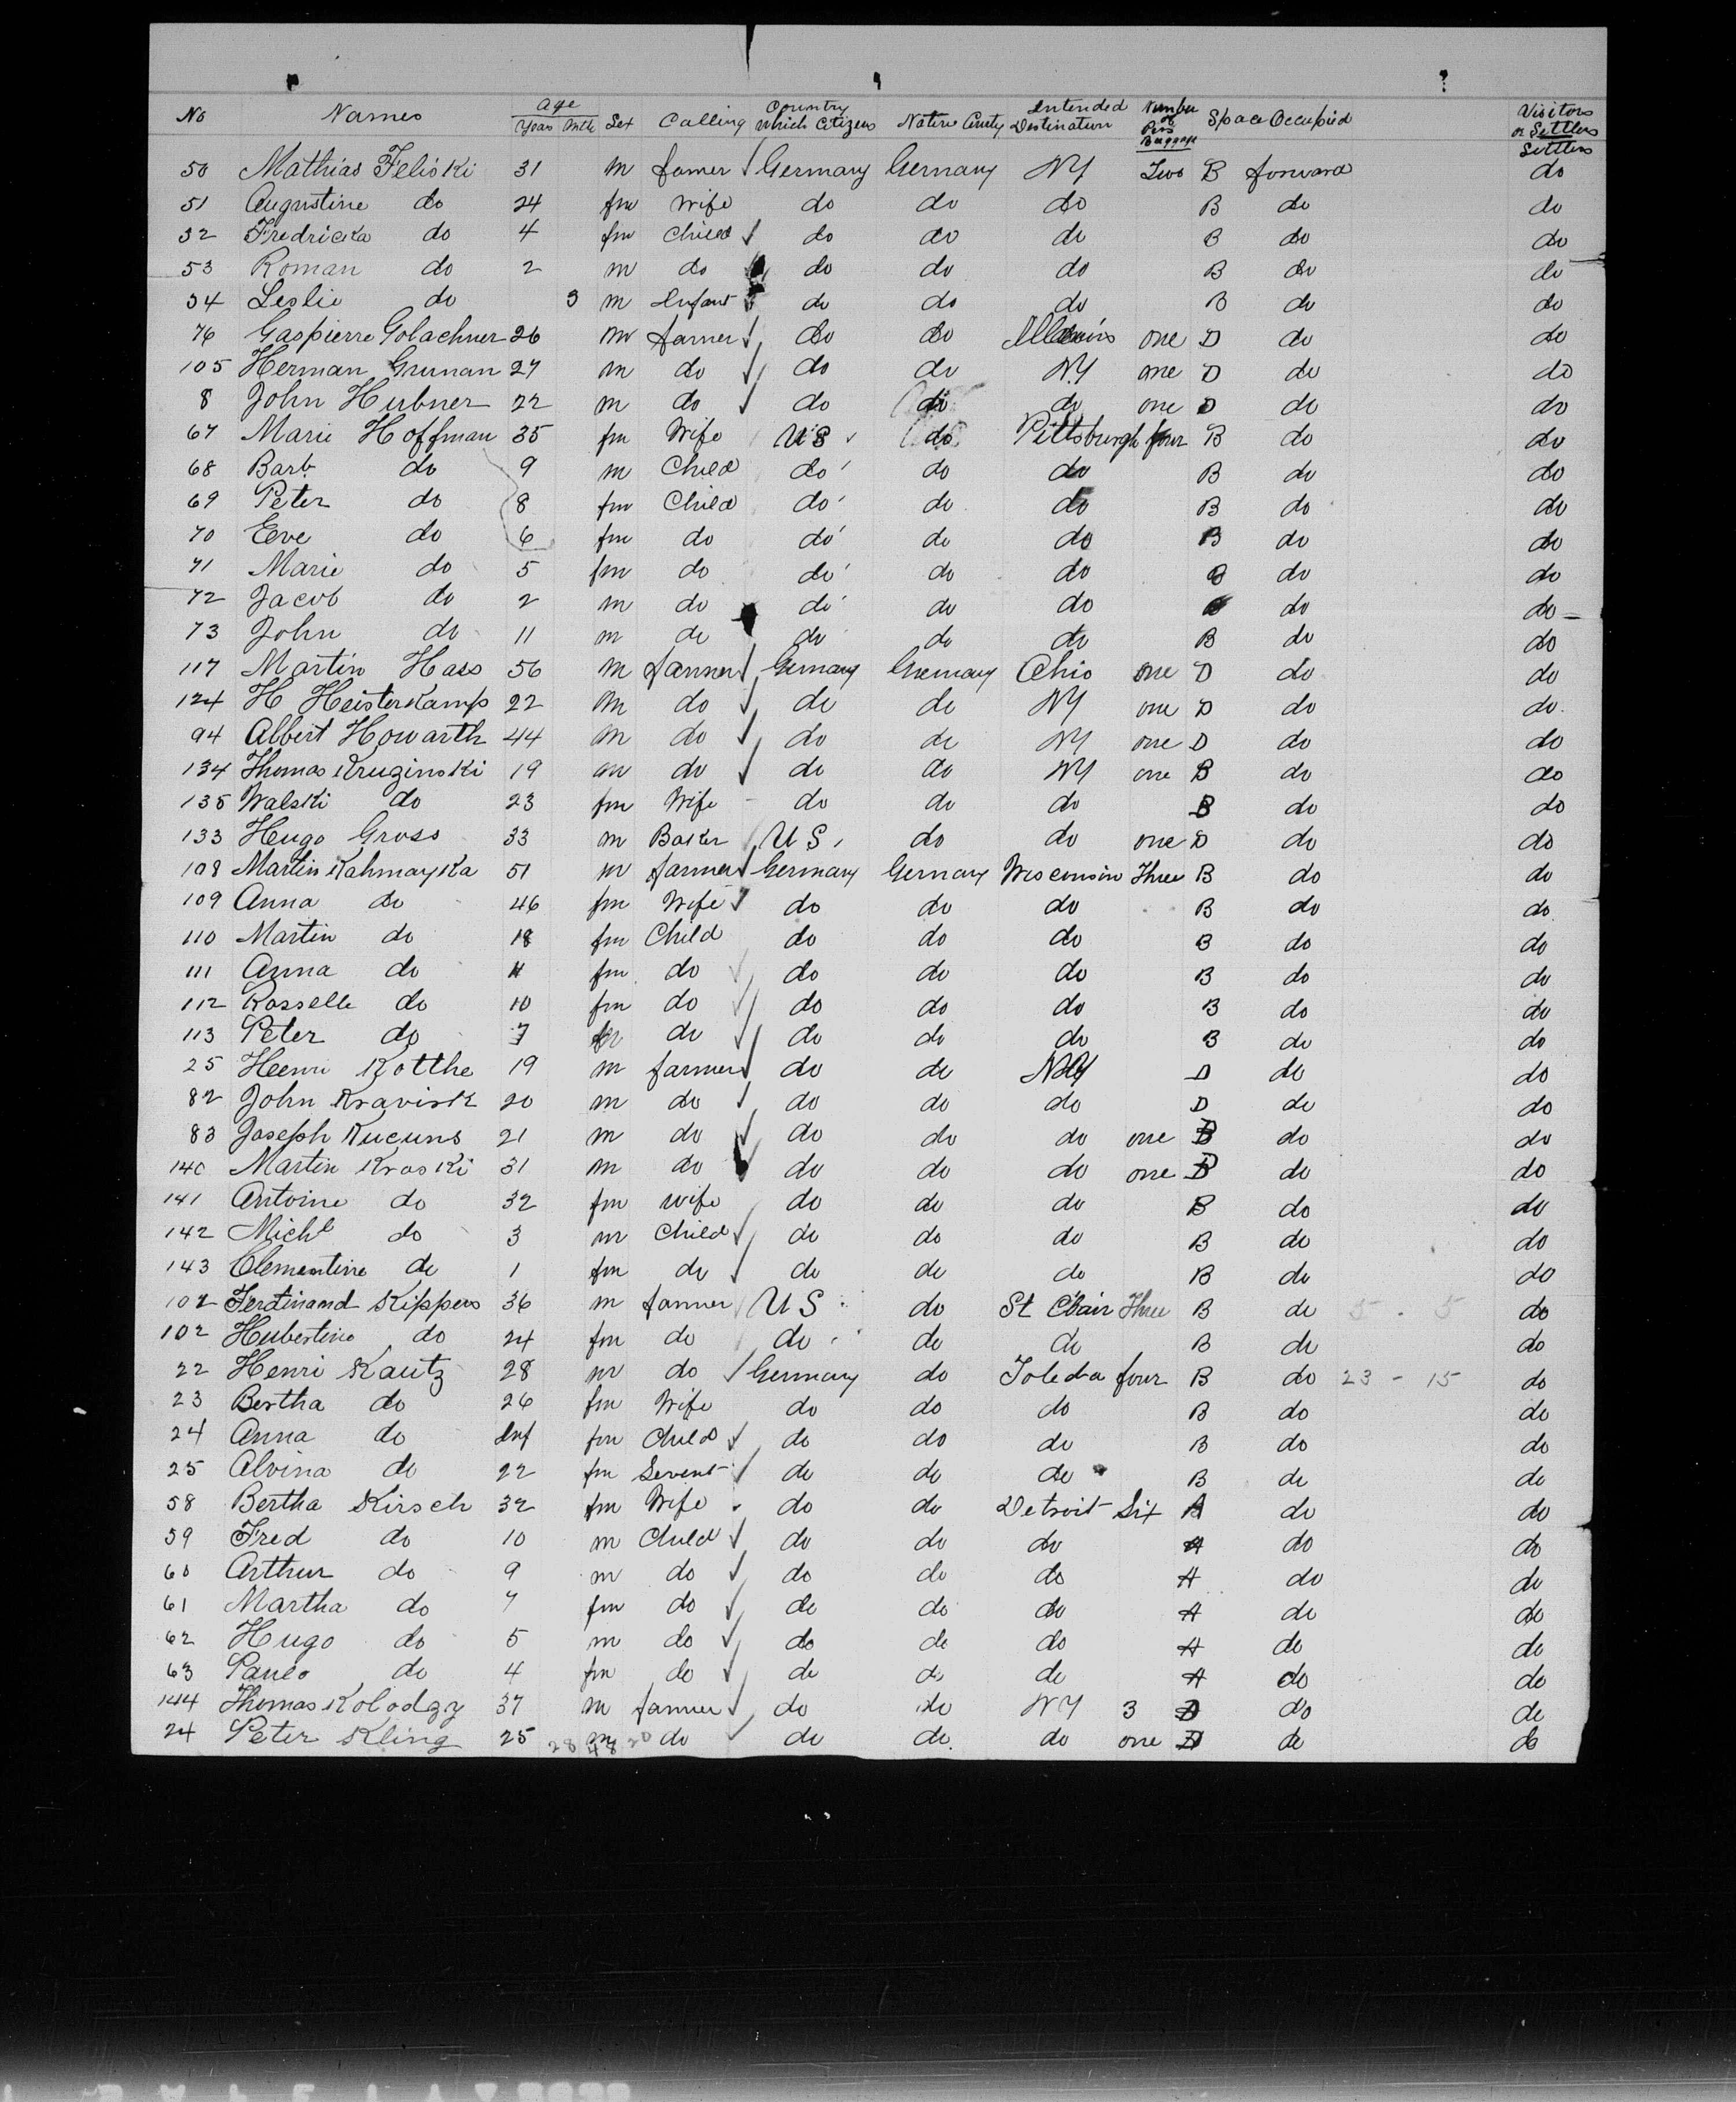 No Names Age Years Mth Sex Calling Country Which Citizens Native Cnty Intended Destination Number of Pcs Baggage Space Occupied Visitors or Settlers
Settlers
50 Mathias Feliski 31 m farmer Germany Germany NY Two B forward do
51 Augustine do 24 fm Wife do do do B do do
52 Fredricka do 4 fm Child do do do B do do
53 Roman do 2 m do do do do B do do
54 Leslie do 3 m Infant do do do B do do
76 Gaspierre Golachner 26 m farmer do do Illinois one D do do
105 Herman Gruman 27 m do do do N.Y one D do do
8 John Hubner 22 m do do do do one D do do
67 Marie Hoffman 35 fm Wife US do Pittsburgh four B do do
68 Barb do 9 m Child do do do B do do
69 Peter do 8 fm Child do do do B do do
70 Eve do 6 fm do do do do B do do
71 Marie do 5 fm do do do do B do do
72 Jacob do 2 m do do do do do do
73 John do 11 m do do do do B do do
117 Martin Hass 56 m farmer Germany Germany Ohio one D do do
124 H Heisterkamp 22 m do do do NY one D do do
94 Albert Howarth 44 m do do do NY one D do do
134 Thomas Kruginski 19 m do do do NY one B do do
135 Walski do 23 fm Wife do do do B do do
133 Hugo Gross 33 m Baker U S do do one D do do
108 Martin Kahmayka 51 m farmer Germany Germany Wisconsin Three B do do
109 Anna do 46 fm Wife do do do B do do
110 Martin do 18 fm Child do do do B do do
111 Anna do fm do do do do B do do
112 Rosselle do 10 fm do do do do B do do
113 Peter do 7 do do do do B do do
25 Heenri Kotthe 19 m farmer do do NY D do do
82 John Kravisk 20 m do do do do D do do
83 Joseph Kucuns 21 m do do do do one B do do
140 Martin Kraski 31 m do do do do one B do do
141 Antoine do 32 fm wife do do do B do do
142 Michl do 3 m Child do do do B do do
143 Clementine do 1 fm do do do do B do do
102 Ferdinand Kippers 36 m farmer U S do St Clair Three B do 5 - 5 do
102 Hubertine do 24 fm do do do do B do do
22 Henri Kautz 28 m do Germany do Toledo four B do 23 - 15 do
23 Bertha do 26 fm Wife do do do B do do
24 Anna do Inf fm Child do do do B do do
25 Alvina do 22 fm Sevent do do do B do do
58 Bertha Kirsch 32 fm Wife do do Detroit Six A do do
59 Fred do 10 m Child do do do A do do
60 Arthur do 9 m do do do do A do do
61 Martha do 7 fm do do do do A do do
62 Hugo do 5 m do do do do A do do
63 do 4 fm do do do do A do do
144 Thomas Kolodzy 37 m farmer do do NY 3 D do do
24 Peter Kling 25 28 m 48 20 do do do do one D do do